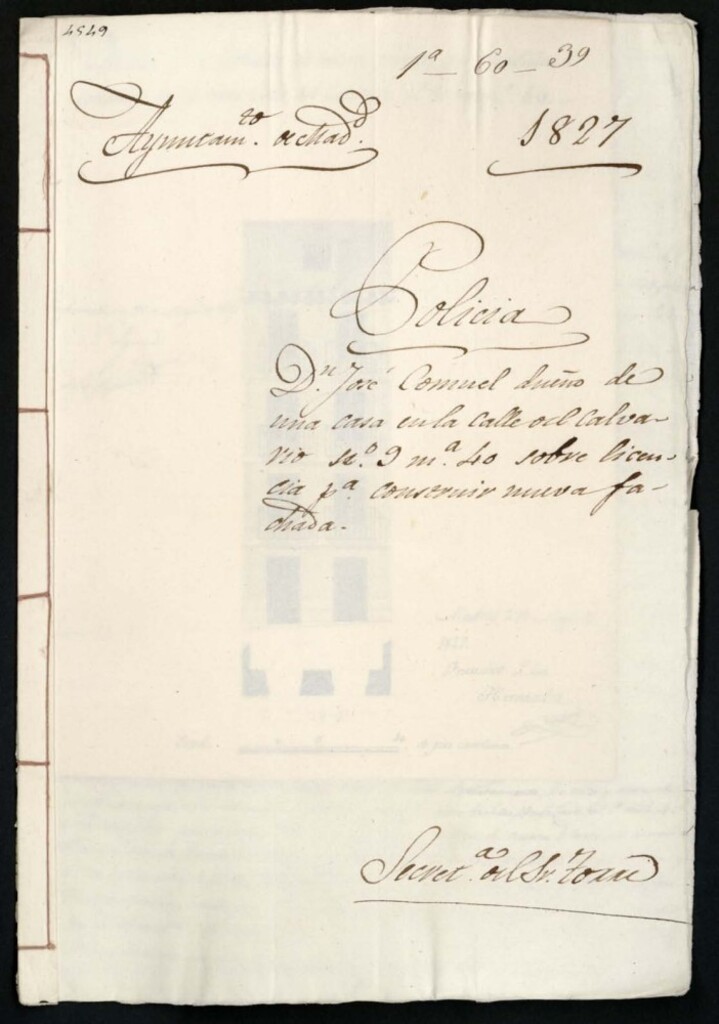 4549
1ª - 60 - 39
Ayuntamto. de Madd.
1827
Policia
Dn. José Comuel dueño de
una casa en la calle del Calva-
rio no. 9 mª. 40 sobre licen-
cia pª. construir nueva fa-
chada.
Secretª. del Sr.